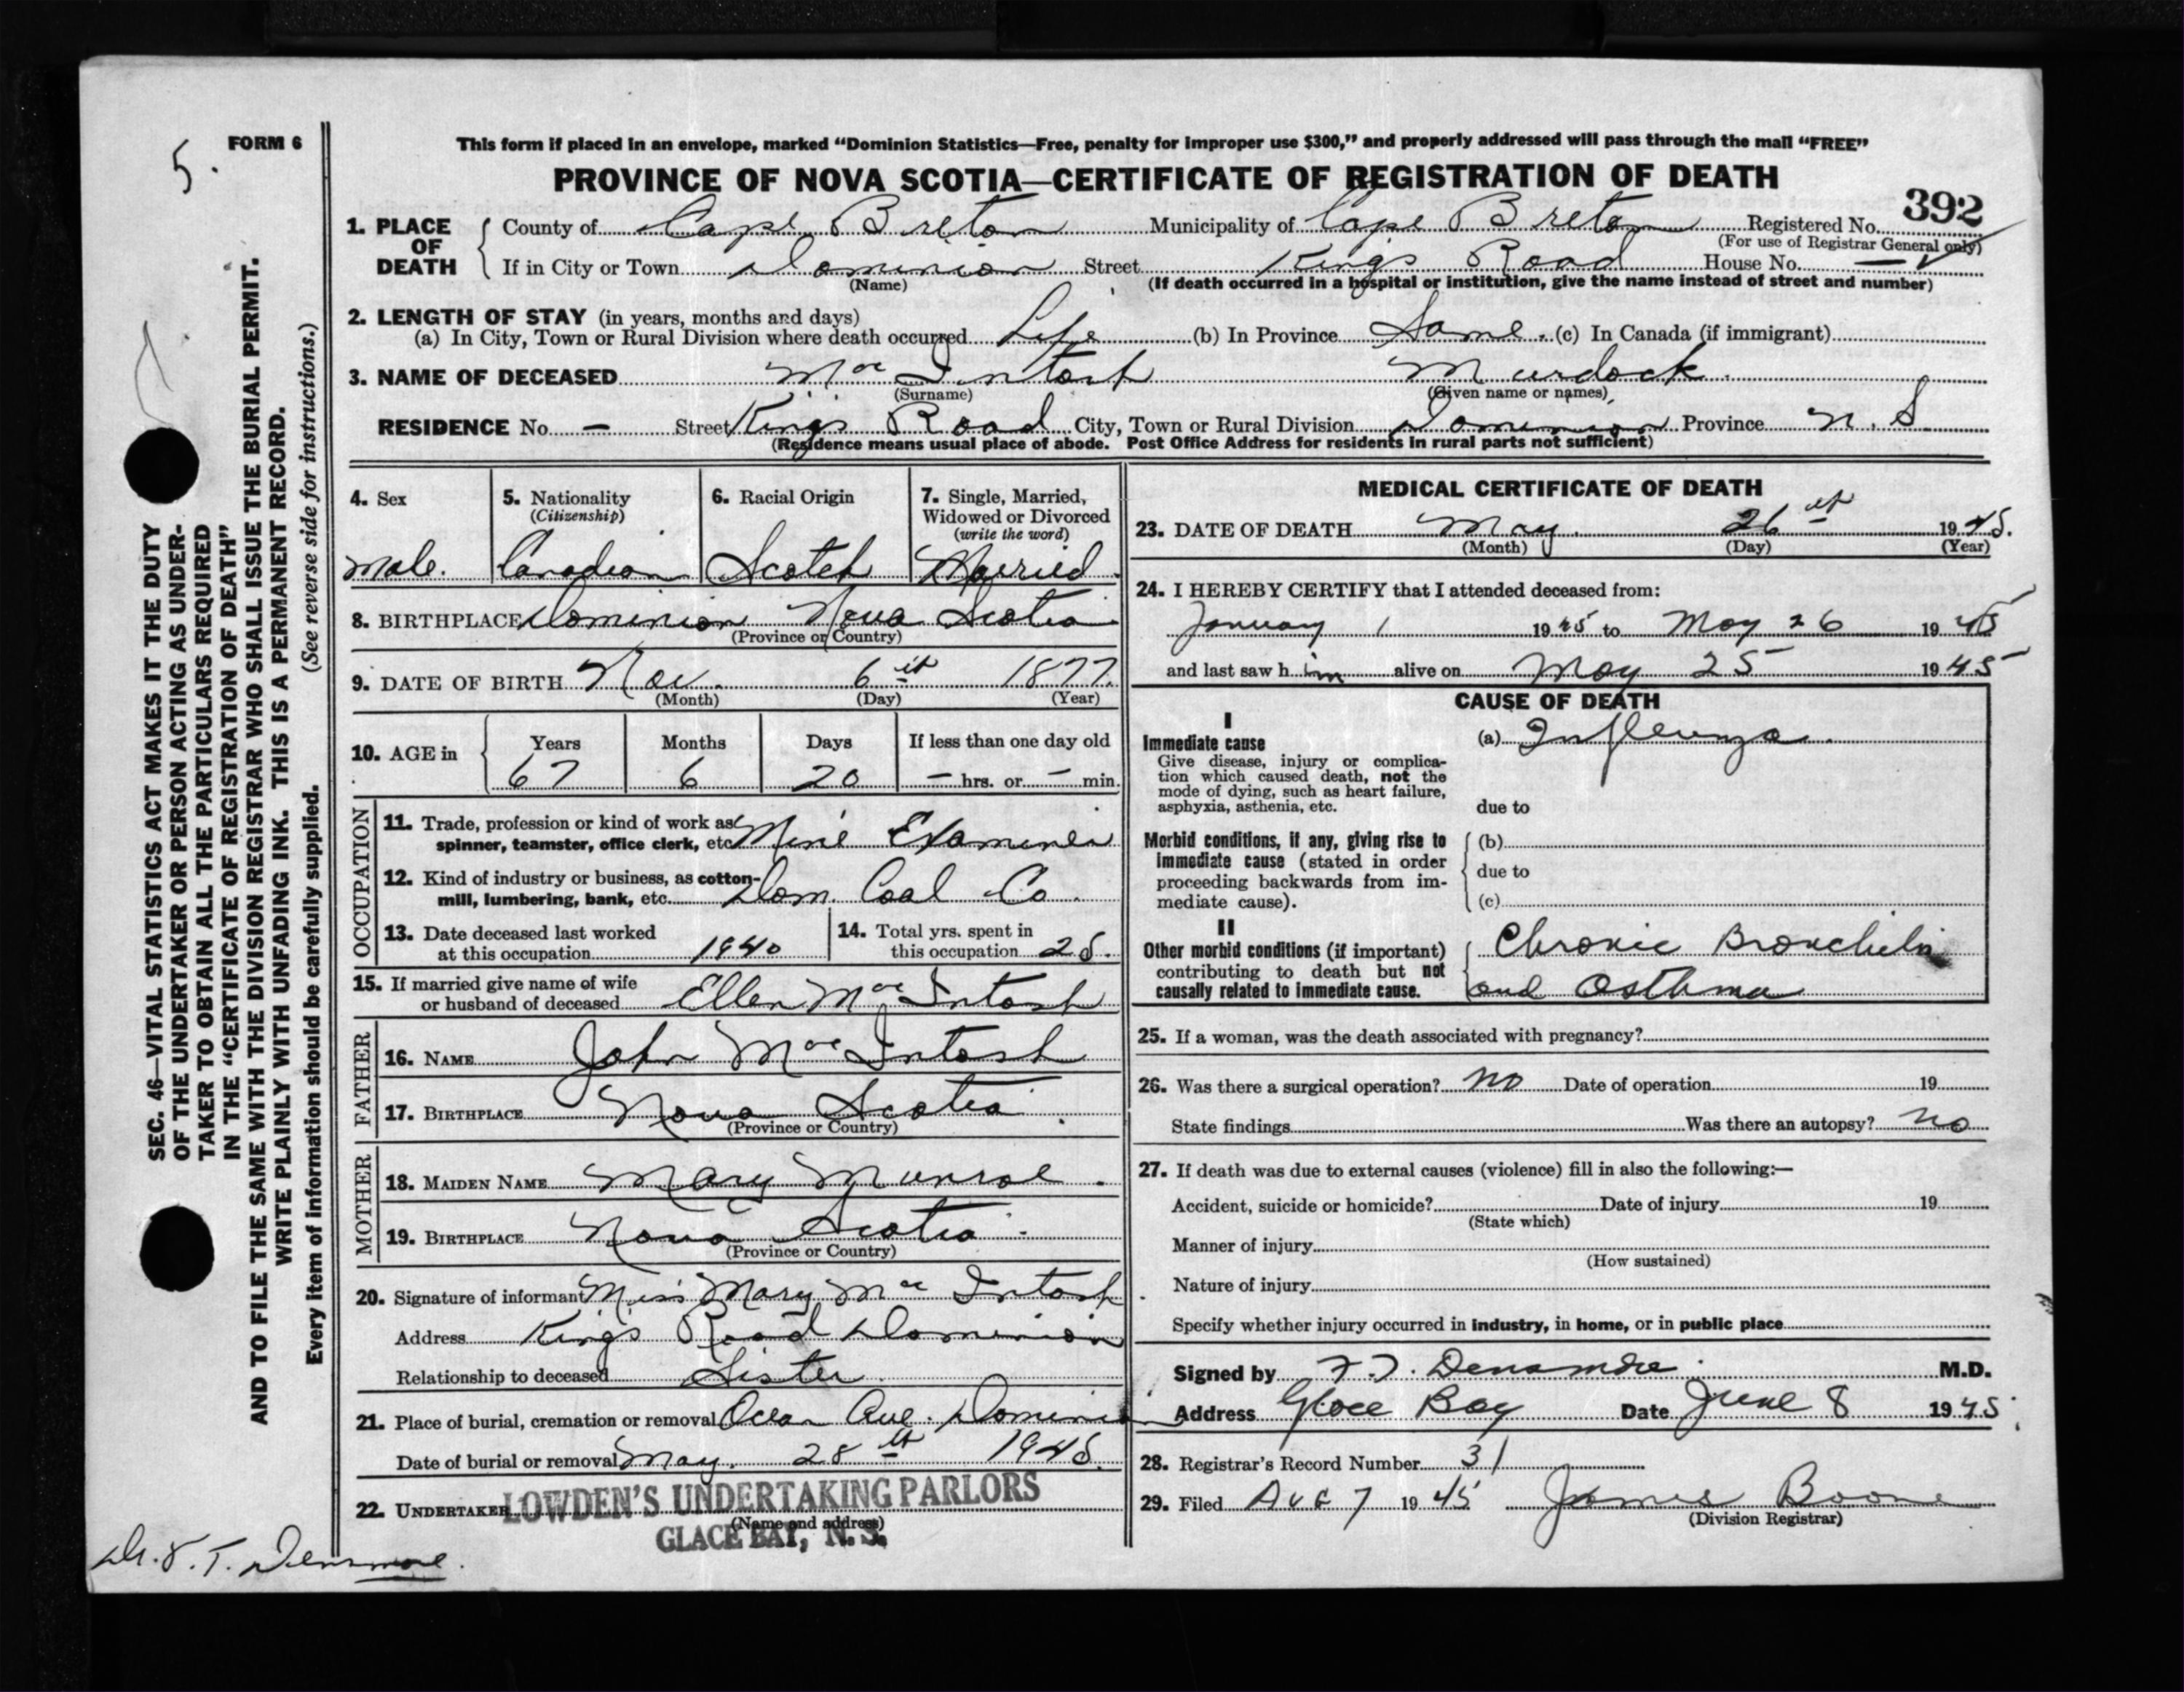 5.
FORM 6
This form if placed in an envelope, marked “Dominion Statistics—Free, penalty for improper use $300,” and properly addressed will pass through the mail “FREE”
PROVINCE OF NOVA SCOTIA—CERTIFICATE OF REGISTRATION OF DEATH
392
1. PLACE OF DEATH County of Cape Breton Municipality of Cape Breton Registered No.
(For use of Registrar General only)
If in City or Town Dominion Street Kings Road House No. —
(Name) (If death occurred in a hospital or institution, give the name instead of street and number)
2. LENGTH OF STAY (in years, months and days)
(a) In City, Town or Rural Division where death occurred Life (b) In Province Same. (c) In Canada (if immigrant)
3. NAME OF DECEASED MacIntosh Murdock
(Surname) (Given name or names)
RESIDENCE No. — Street King's Road City, Town or Rural Division Dominion Province N. S.
(Residence means usual place of abode. Post Office Address for residents in rural parts not sufficient)
4. Sex
Male.
5. Nationality
(Citizenship)
Canadian
6. Racial Origin
Scotch
7. Single, Married,
Widowed or Divorced
(write the word)
Married.
8. BIRTHPLACE Dominion Nova Scotia
(Province or Country)
9. DATE OF BIRTH Nov. 6th 1877.
(Month) (Day) (Year)
10. AGE in Years Months Days If less than one day old
67 6 20 — hrs. or — min.
OCCUPATION
11. Trade, profession or kind of work as
spinner, teamster, office clerk, etc. Mine Examiner
12. Kind of industry or business, as cotton-
mill, lumbering, bank, etc. Dom. Coal Co.
13. Date deceased last worked
at this occupation 1940
14. Total yrs. spent in
this occupation 25.
15. If married give name of wife
or husband of deceased Ellen MacIntosh
FATHER
16. NAME John MacIntosh
17. BIRTHPLACE Nova Scotia.
(Province or Country)
MOTHER
18. MAIDEN NAME Mary Munroe.
19. BIRTHPLACE Nova Scotia.
(Province or Country)
20. Signature of informant Miss Mary MacIntosh
Address Kings Road Dominion
Relationship to deceased Sister.
21. Place of burial, cremation or removal Ocean Ave. Dominion
Date of burial or removal May. 28th 1945.
22. UNDERTAKER LOWDEN'S UNDERTAKING PARLORS
(Name and address)
GLACE BAY, N. S.
MEDICAL CERTIFICATE OF DEATH
23. DATE OF DEATH May. 26th 1945.
(Month) (Day) (Year)
24. I HEREBY CERTIFY that I attended deceased from:
January 1 1945 to May 26 1945
and last saw him alive on May 25 1945
CAUSE OF DEATH
I
Immediate cause
Give disease, injury or complica-
tion which caused death, not the
mode of dying, such as heart failure,
asphyxia, asthenia, etc.
(a) Influenza.
due to
Morbid conditions, if any, giving rise to
immediate cause (stated in order
proceeding backwards from im-
mediate cause).
(b)
due to
(c)
II
Other morbid conditions (if important)
contributing to death but not
causally related to immediate cause.
Chronic Bronchitis
and Asthma
25. If a woman, was the death associated with pregnancy?
26. Was there a surgical operation? no Date of operation 19
State findings Was there an autopsy? no
27. If death was due to external causes (violence) fill in also the following:—
Accident, suicide or homicide? Date of injury 19
(State which)
Manner of injury
(How sustained)
Nature of injury
Specify whether injury occurred in industry, in home, or in public place
Signed by F. T. Densmore M.D.
Address Glace Bay Date June 8 1945
28. Registrar's Record Number 31
29. Filed AUG 7 1945 James Boone
(Division Registrar)
SEC. 46—VITAL STATISTICS ACT MAKES IT THE DUTY
OF THE UNDERTAKER OR PERSON ACTING AS UNDER-
TAKER TO OBTAIN ALL THE PARTICULARS REQUIRED
IN THE “CERTIFICATE OF REGISTRATION OF DEATH”
AND TO FILE THE SAME WITH THE DIVISION REGISTRAR WHO SHALL ISSUE THE BURIAL PERMIT.
WRITE PLAINLY WITH UNFADING INK. THIS IS A PERMANENT RECORD.
Every item of information should be carefully supplied. (See reverse side for instructions.)
Dr. F. T. Densmore.